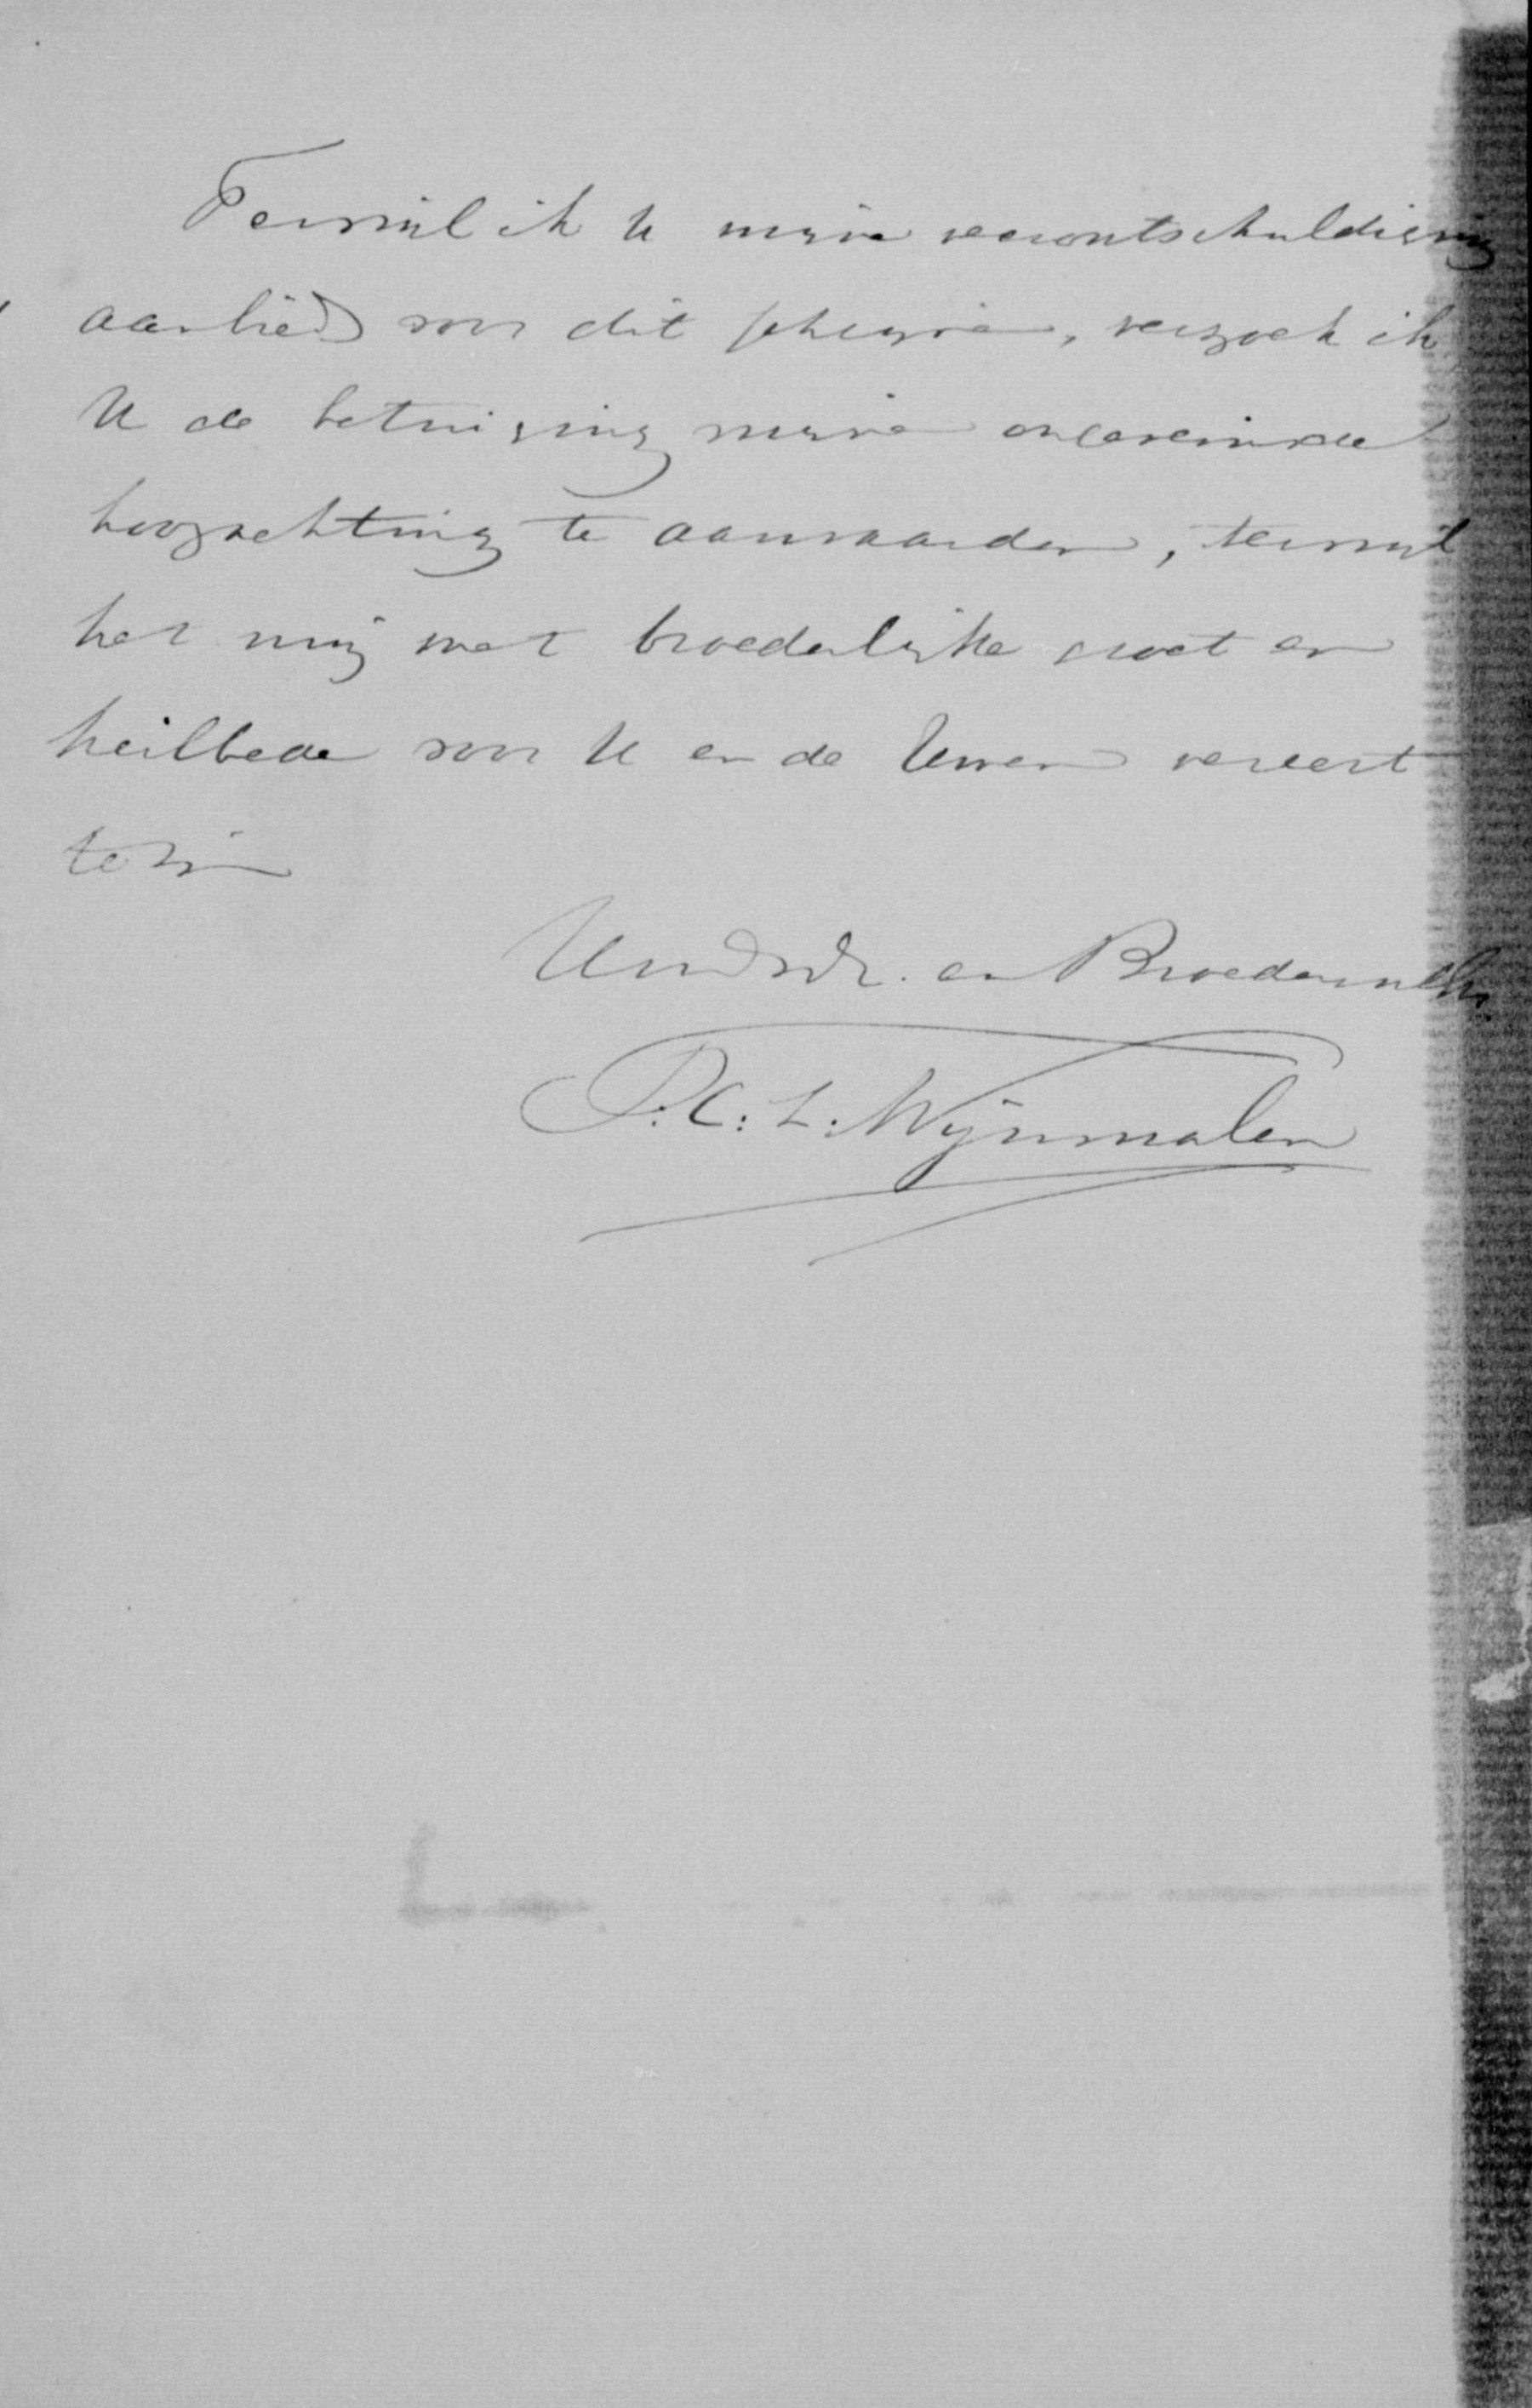 Terwijl ik U mijne verontschuldiging
aanbied voor dit schrijven, verzoek ik
U de betuiging mijner ongeveinsde
hoogachting te aanvaarden, terwijl
het mij met broederlijke groet en
heilbede voor U en de Uwen vereert
te zijn
UwDwDr. en Broeder
P.C.L. Wijnmalen